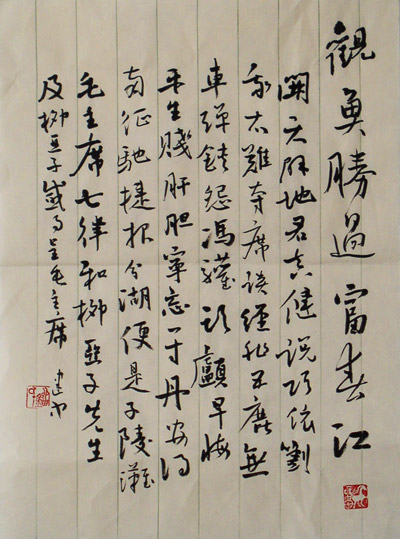 觀魚勝過富春江
開天辟地君真健説項依劉
我大難奪席談經非五鹿無
車彈鋏怨馮驩頭顱早悔
平生賤肝胆寧忘一寸丹安得
南征馳捷报分湖便是子陵灘
毛主席七律和柳亞子先生
及柳亞子感事呈毛主席